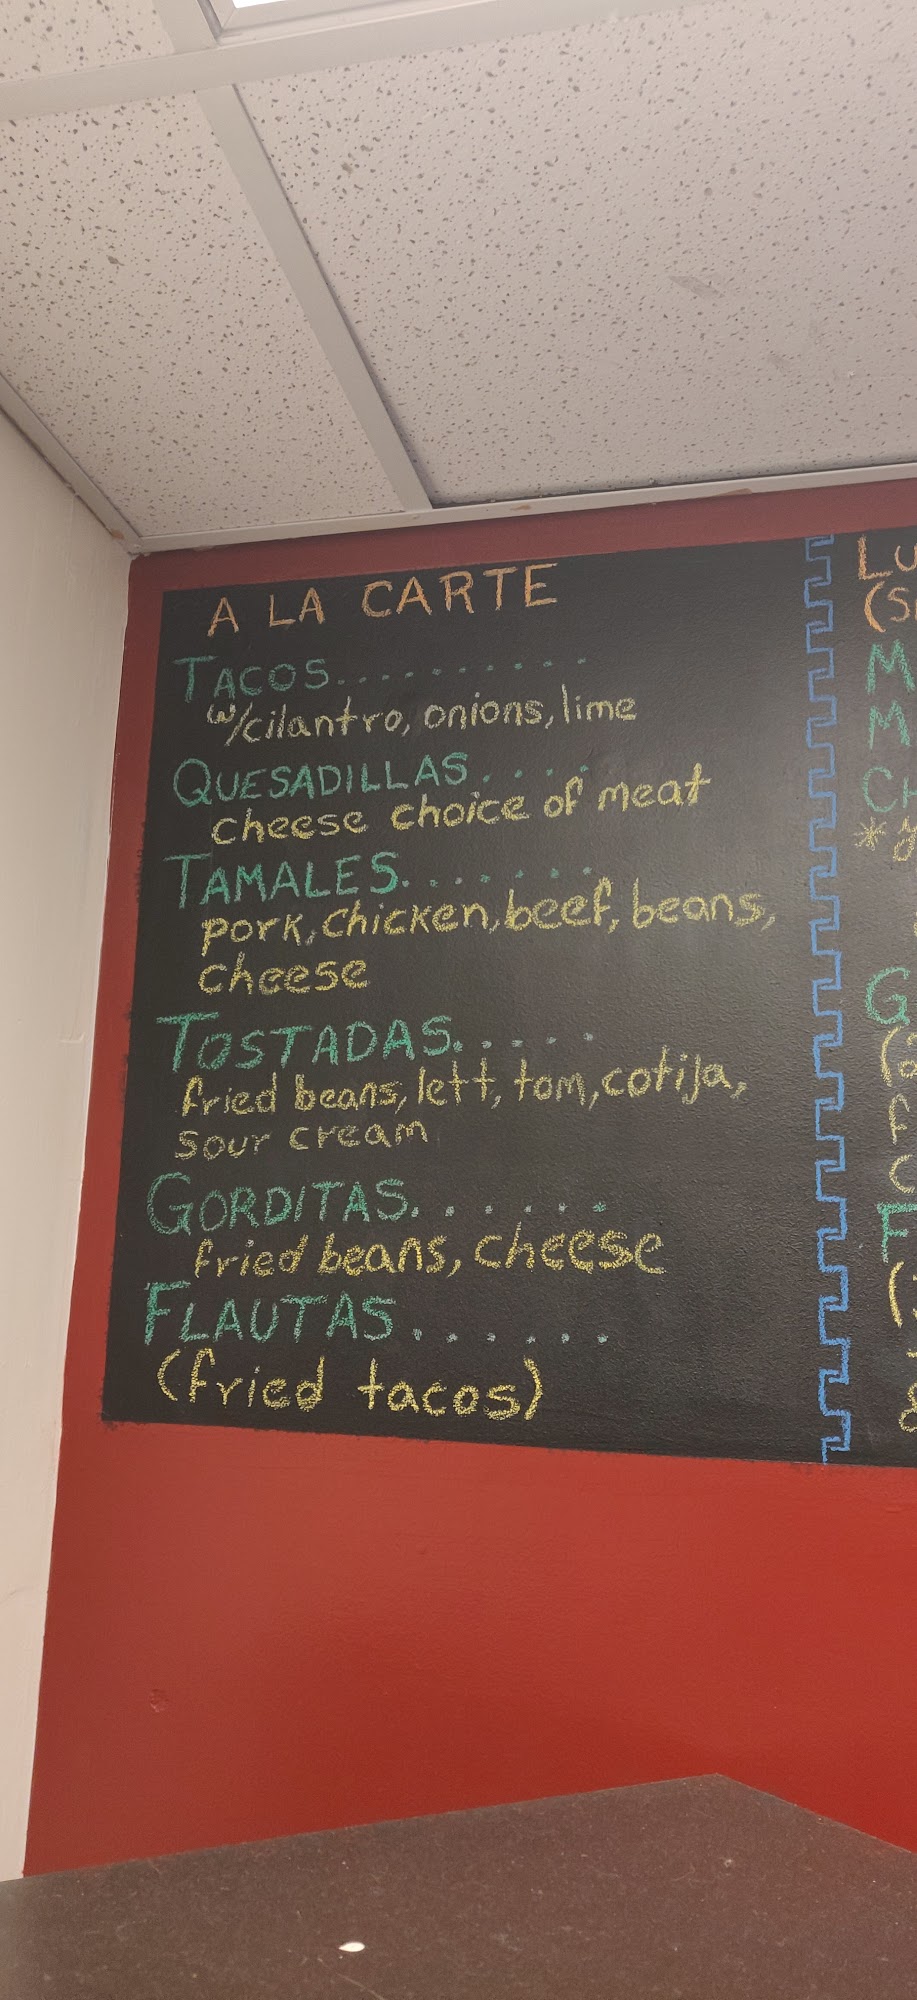 A LA CARTE
TACOS..........
w/cilantro, onions, lime
QUESADILLAS.....
cheese choice of meat
TAMALES.......
pork, chicken, beef, beans,
cheese
TOSTADAS.....
fried beans, lett, tom, cotija,
sour cream
GORDITAS.......
fried beans, cheese
FLAUTAS.......
(fried tacos)